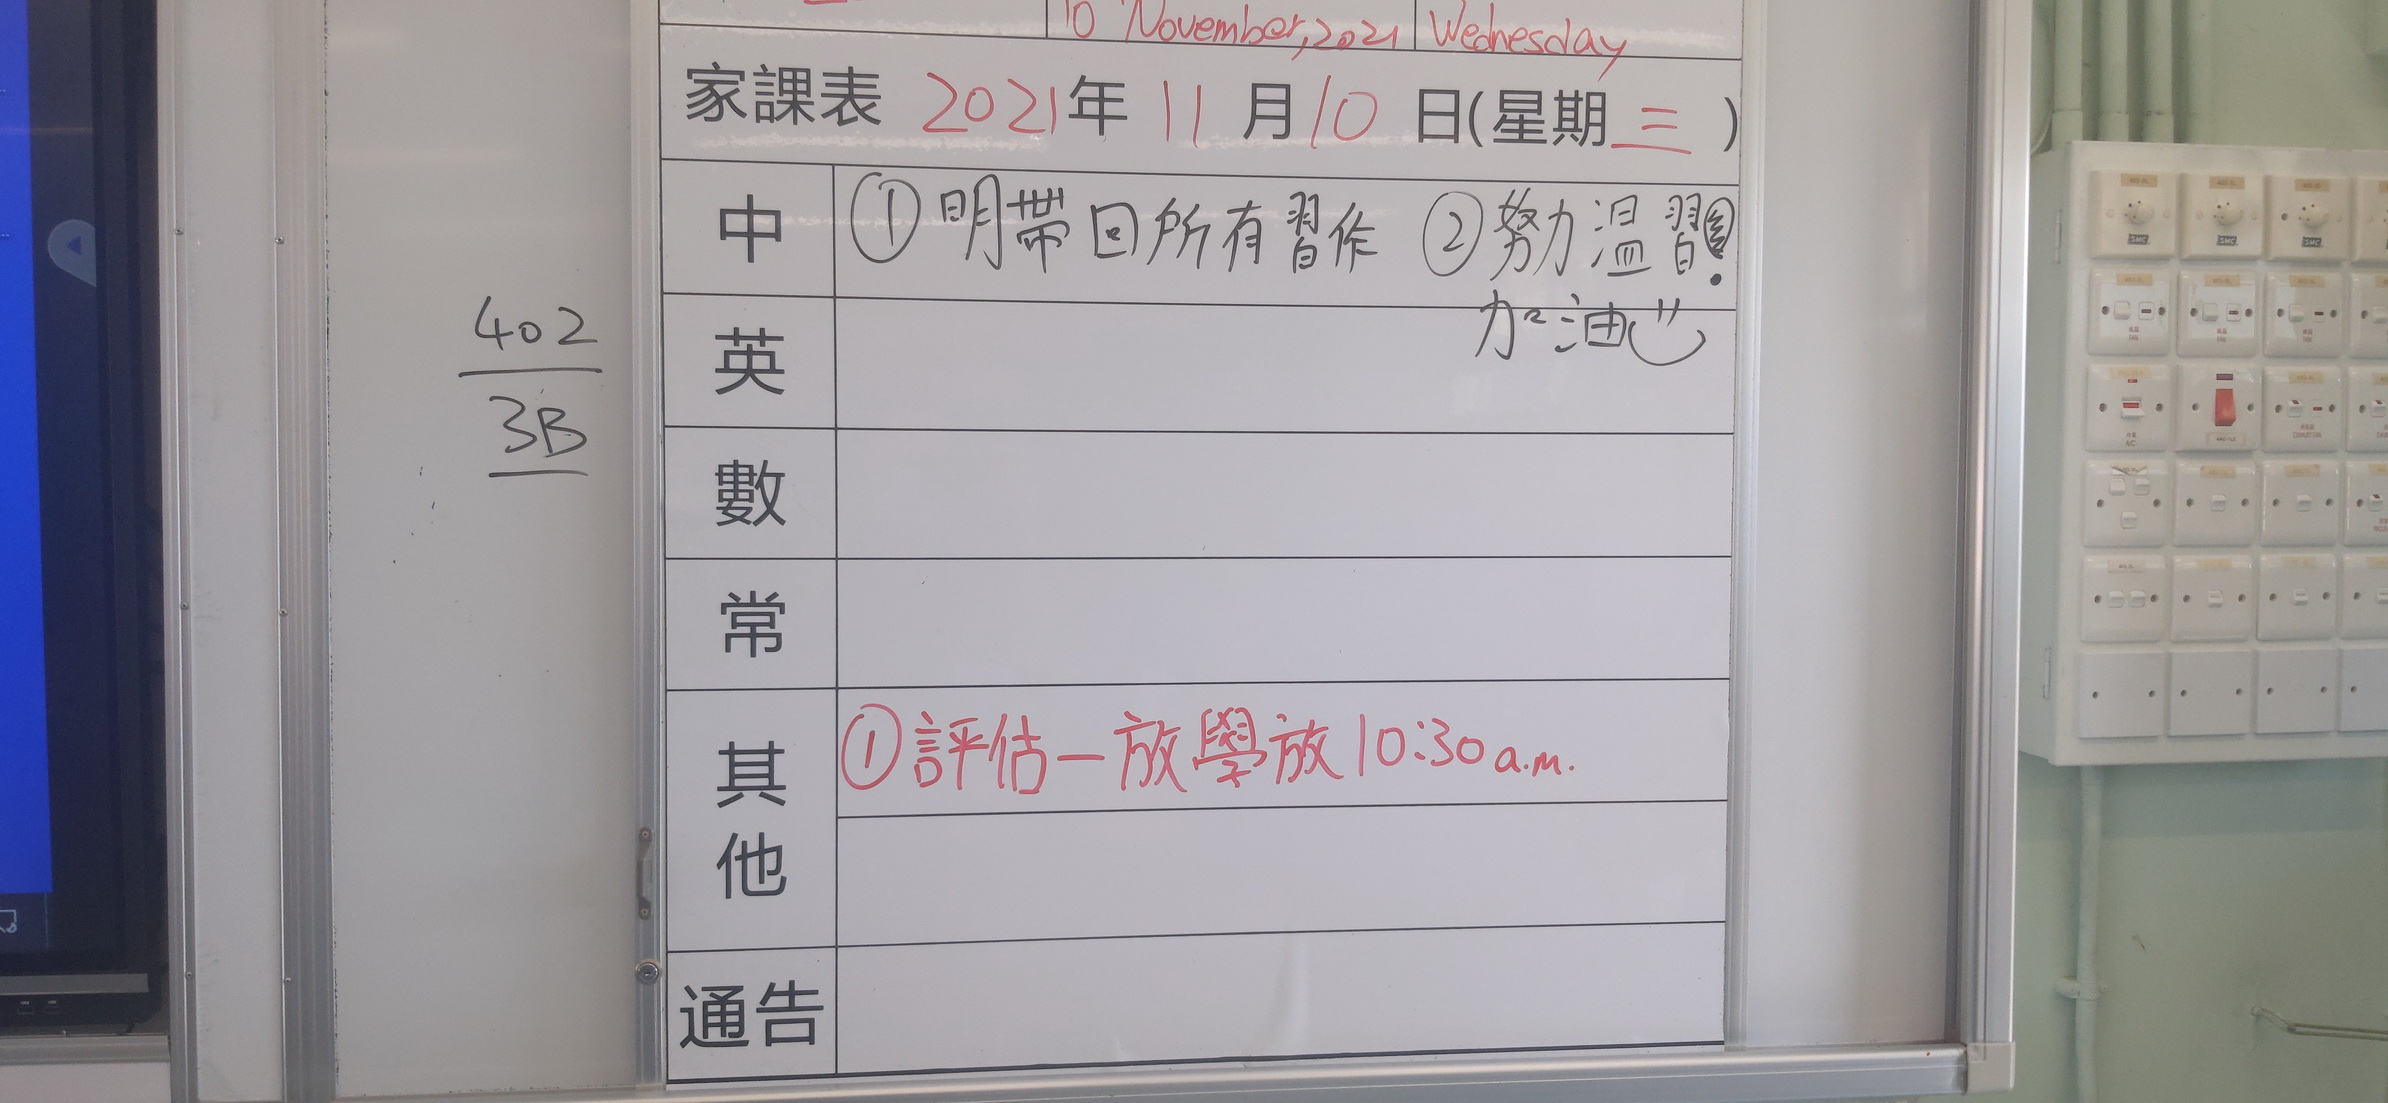 10 November, 2021 Wednesday
家課表 2021年 11月10日(星期三)
中 ①明帶回所有習作 ②努力溫習!
加油
英
數
常
其他 ①評估一放學放10:30a.m.
通告
402
3B